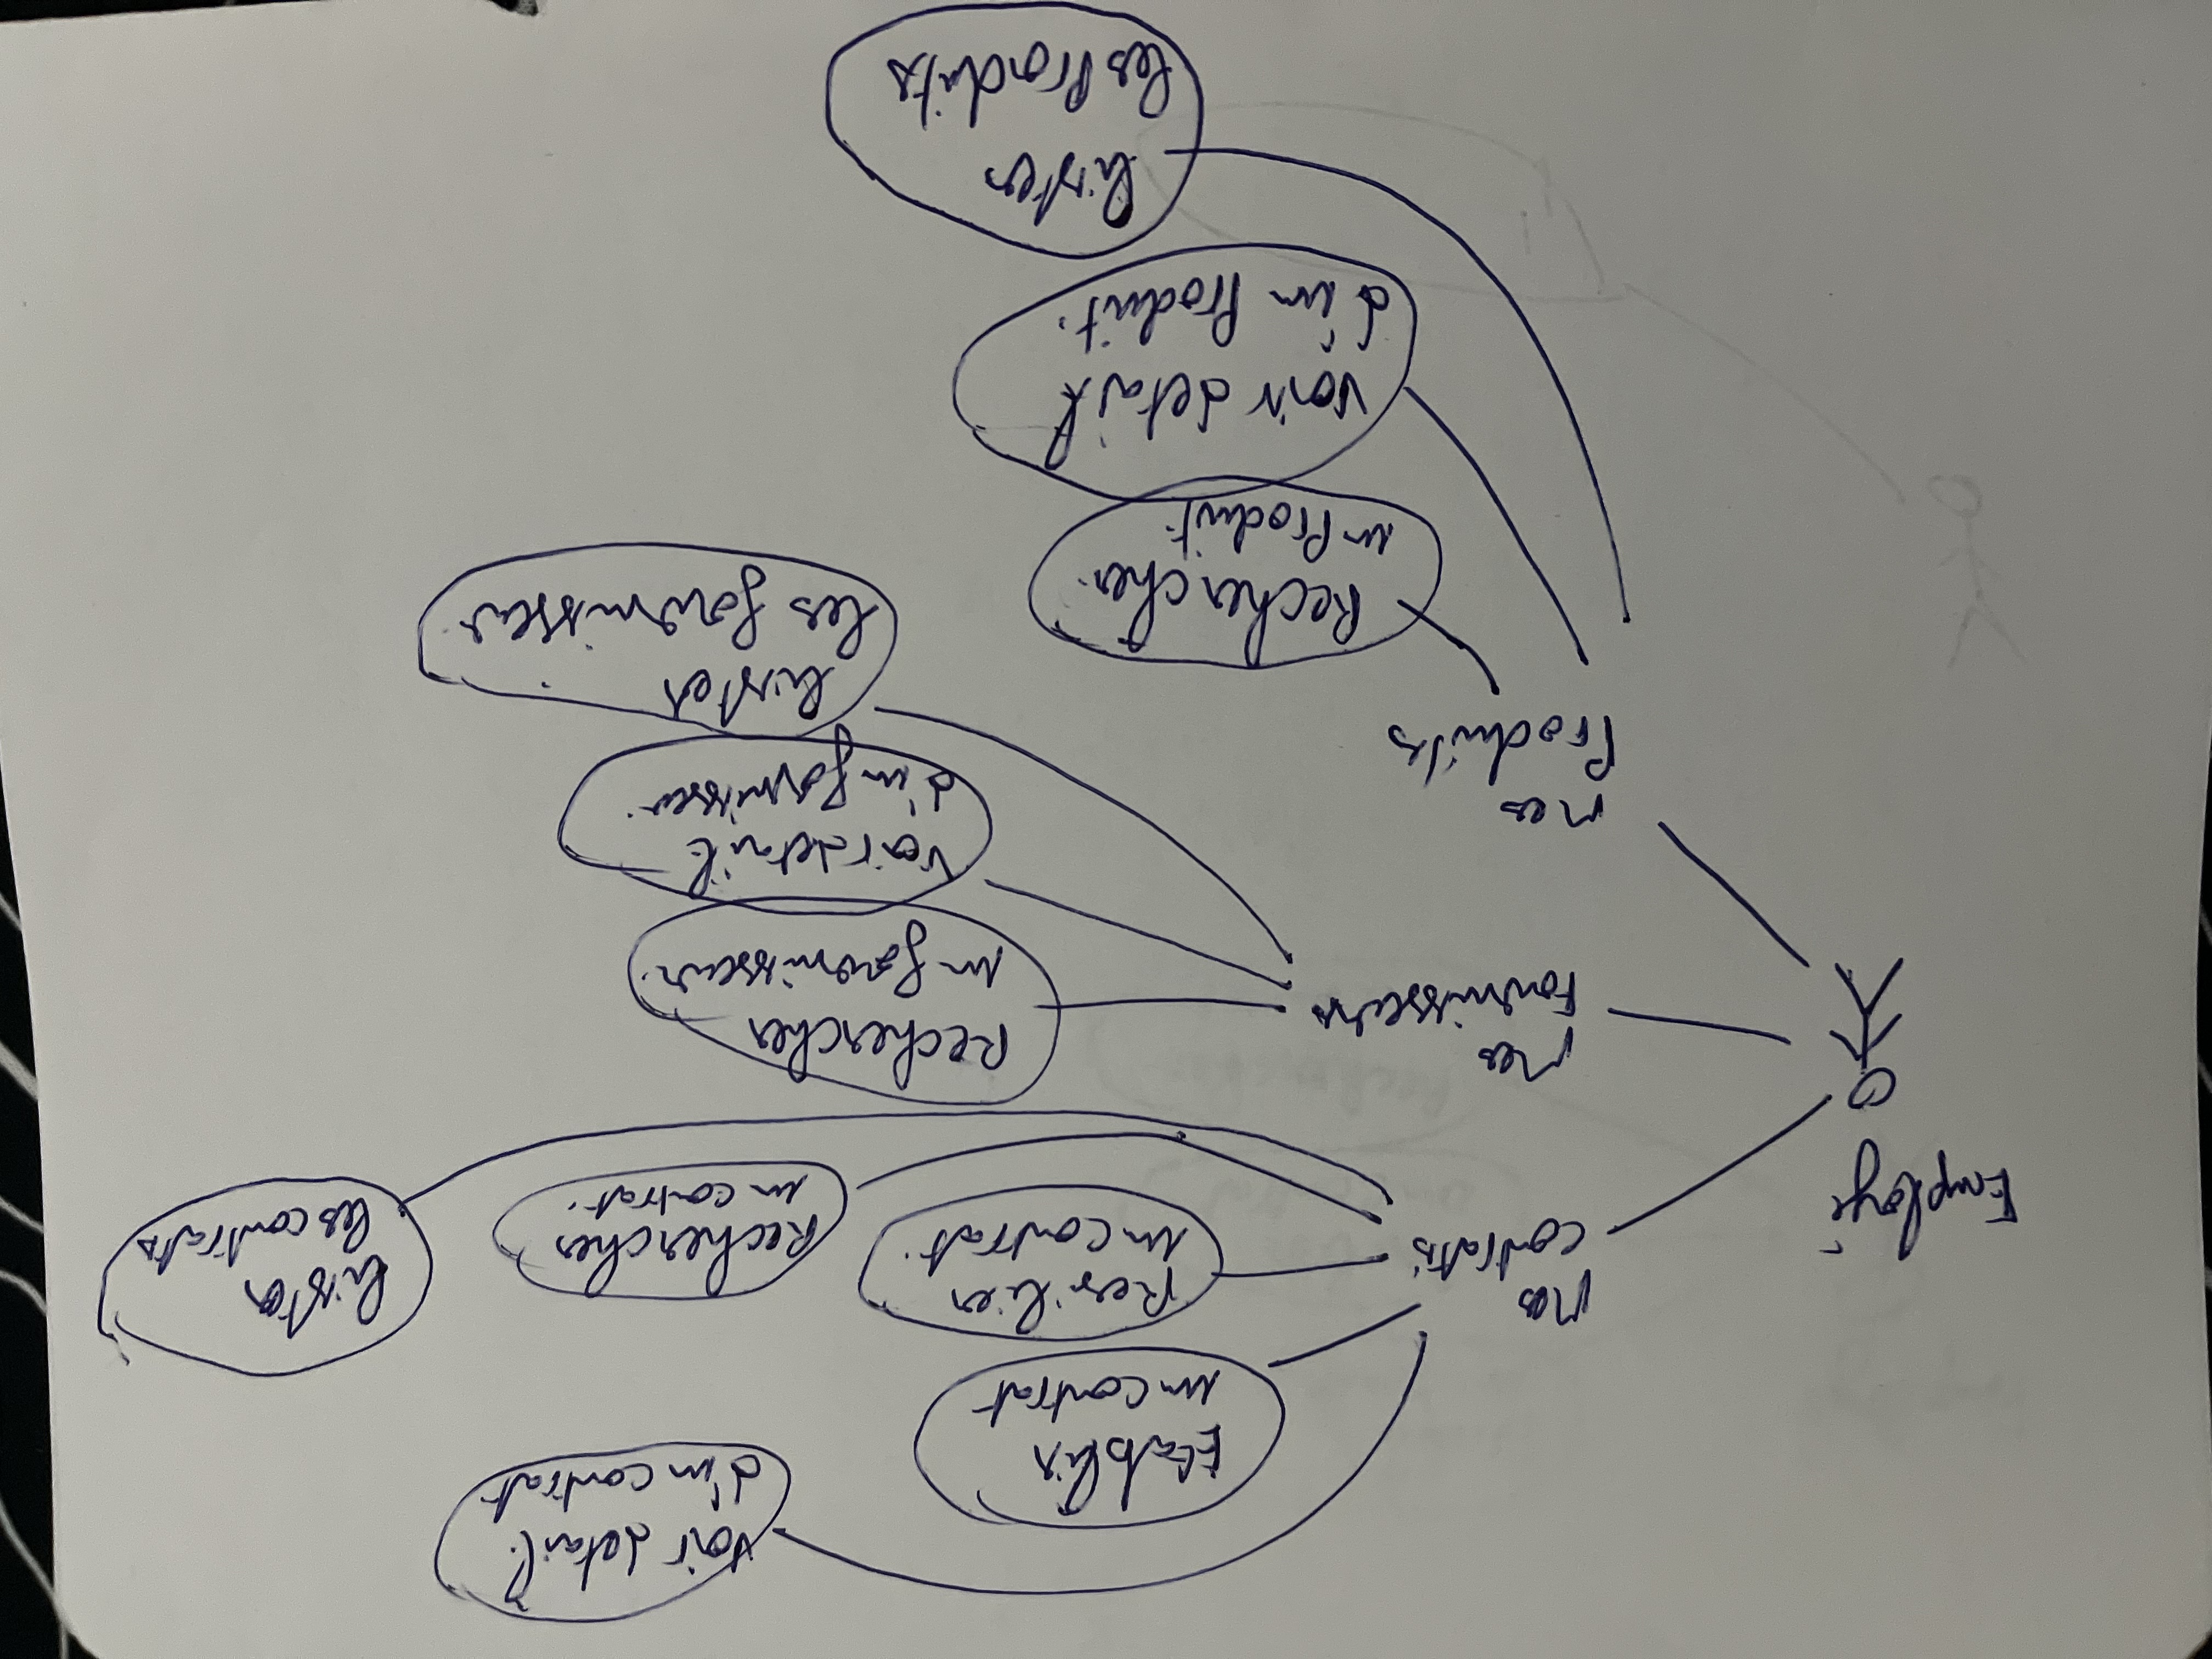 Voir detail
d'un contrat
Etablir
un contrat
Mes
contrats
Resilier
un contrat.
Rechercher
un contrat.
lister
les contrats
Employé
Mes
Fournisseurs
Rechercher
un fournisseur.
Voir detail
d'un fournisseur.
lister
les fournisseur.
Mes
Produits
Rechercher
un Produit.
Voir detail
d'un Produit.
lister
les Produits